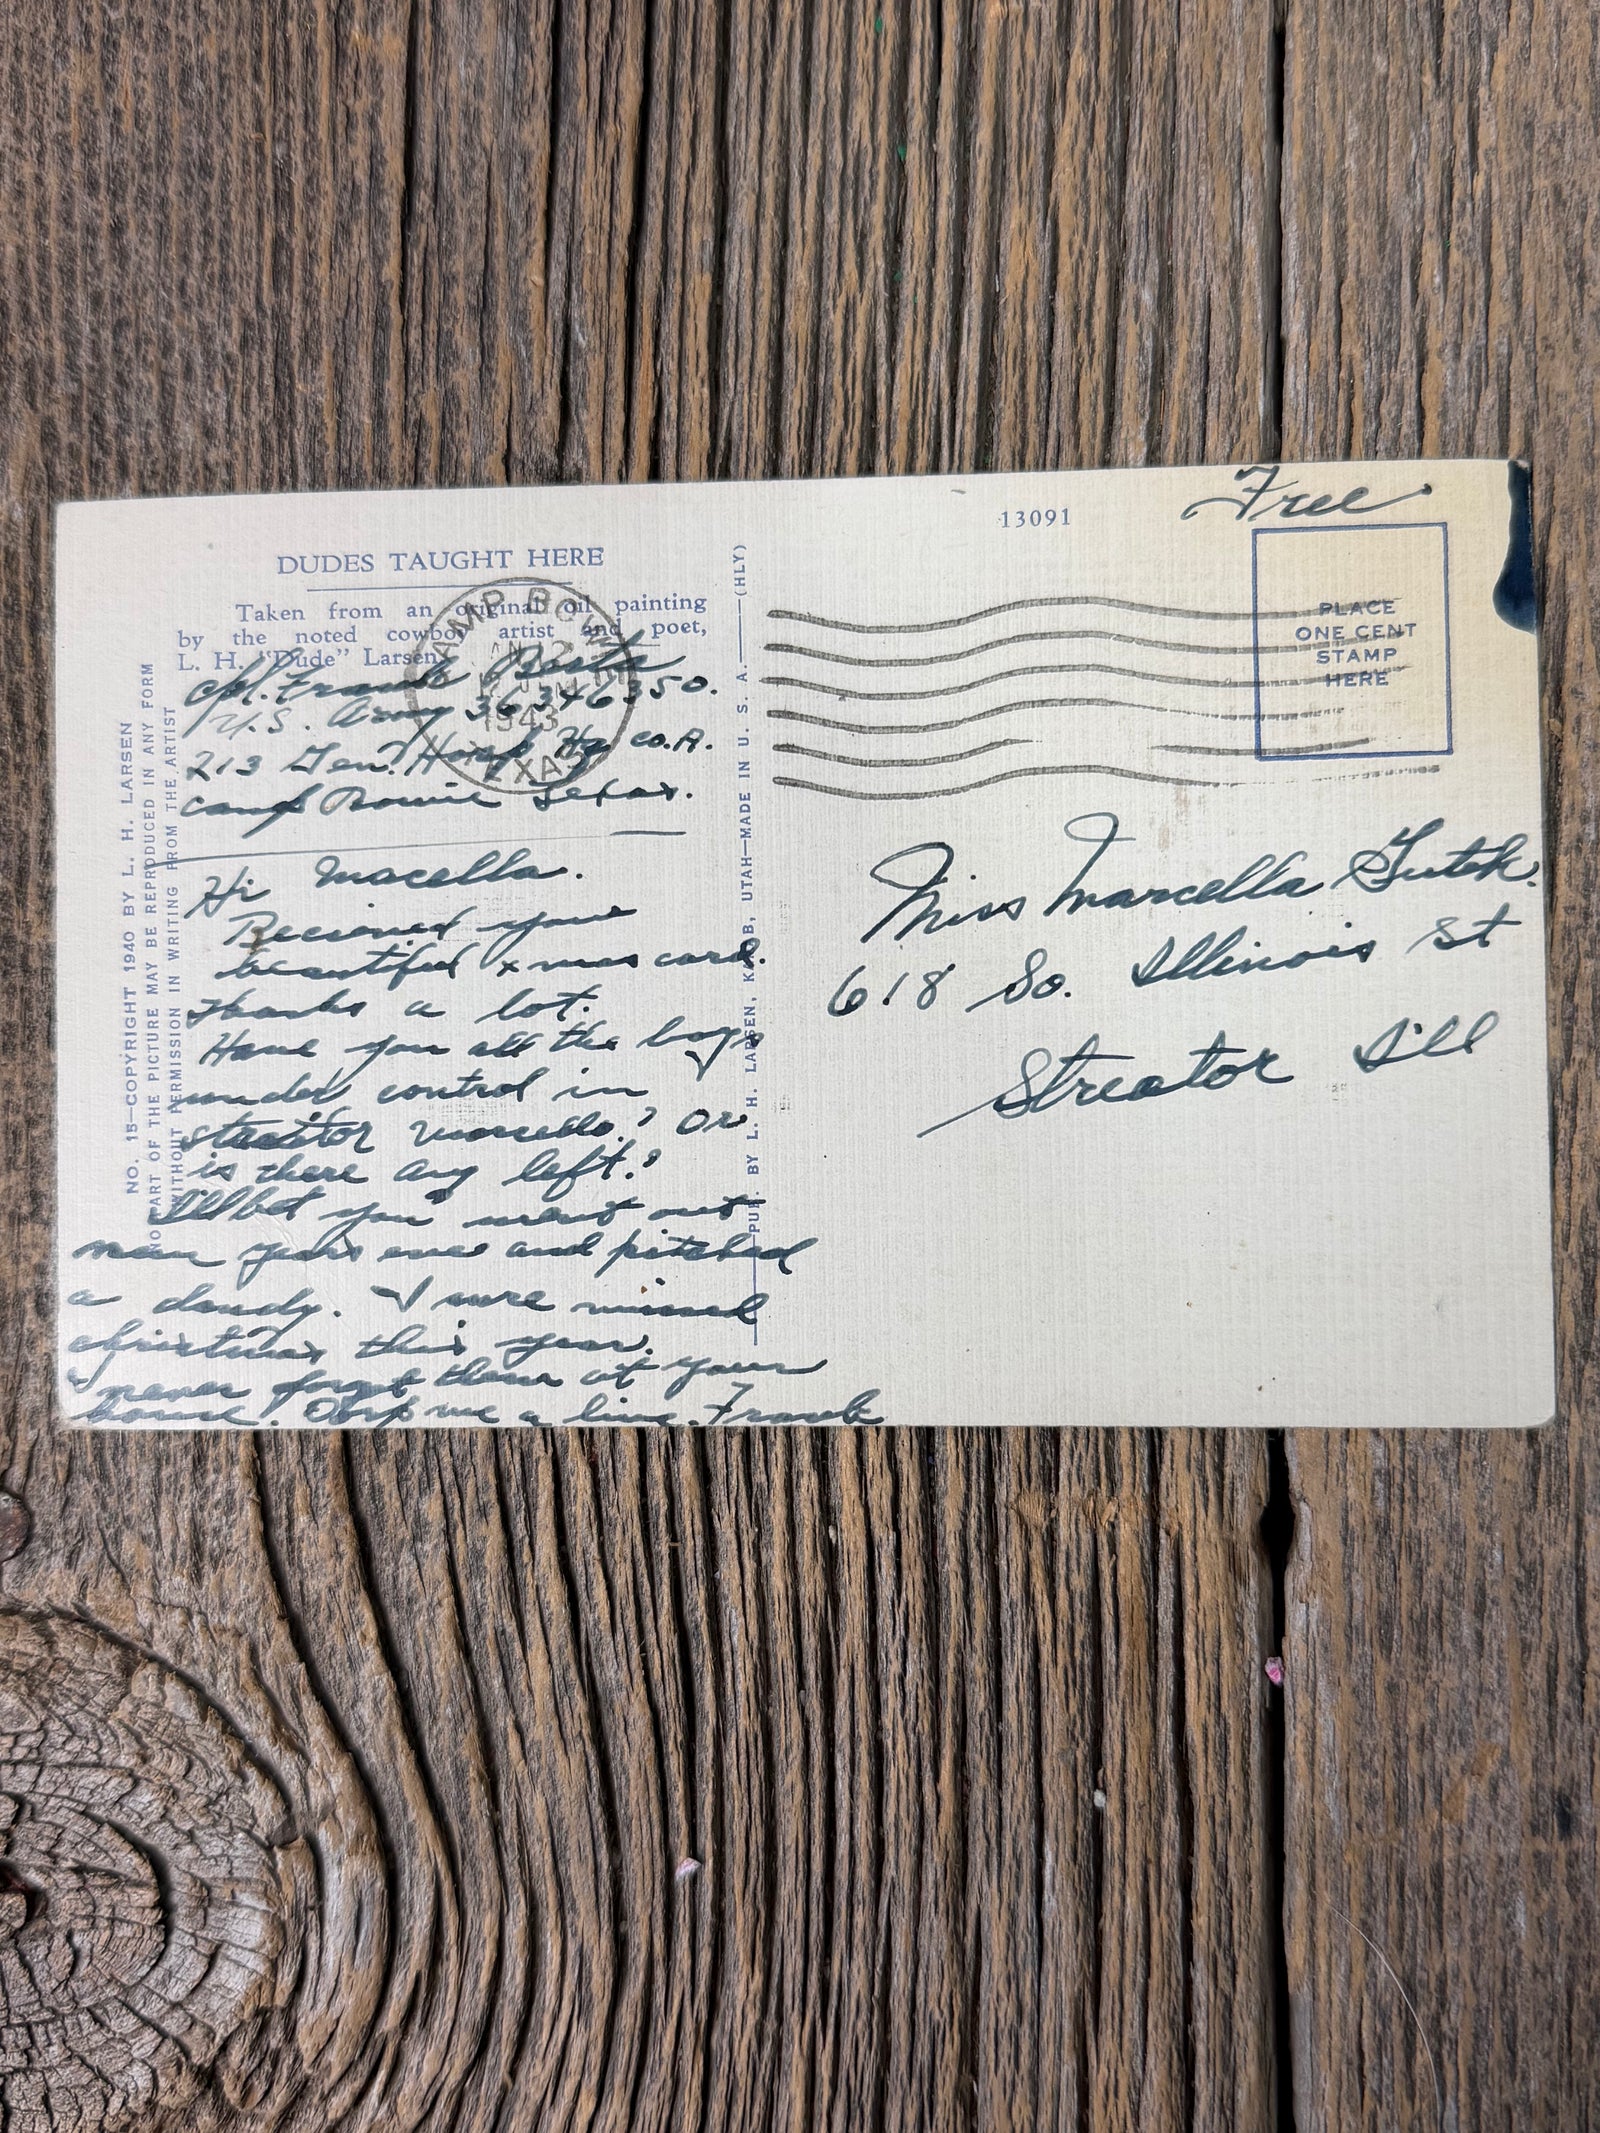 Free
13091
PLACE
ONE CENT
STAMP
HERE
DUDES TAUGHT HERE
Taken from an original oil painting
by the noted cowboy artist and poet,
L. H. "Dude" Larsen
CAMP BOWIE
1943
TEXAS
Cpl. Frank
U.S. Army 36346350.
213 Gen. Hosp Hq co. A.
Camp Bowie Texas.
Hi Macella.
Recieved your
beautiful xmas card.
Thanks a lot.
Have you all the boys
under control in
Streator Marcella? Or
is there any left?
I'll bet you went out
new years eve and pitched
a dandy. I sure missed
christmas this year.
I never forget them at your
house. Drop me a line. Frank
Miss Marcella Gutek.
618 So. Illinois St
Streator Ill
NO. 15—COPYRIGHT 1940 BY L. H. LARSEN
NO PART OF THE PICTURE MAY BE REPRODUCED IN ANY FORM
WITHOUT PERMISSION IN WRITING FROM THE ARTIST
PUB. BY L. H. LARSEN, UTAH—MADE IN U. S. A.—(HLY)